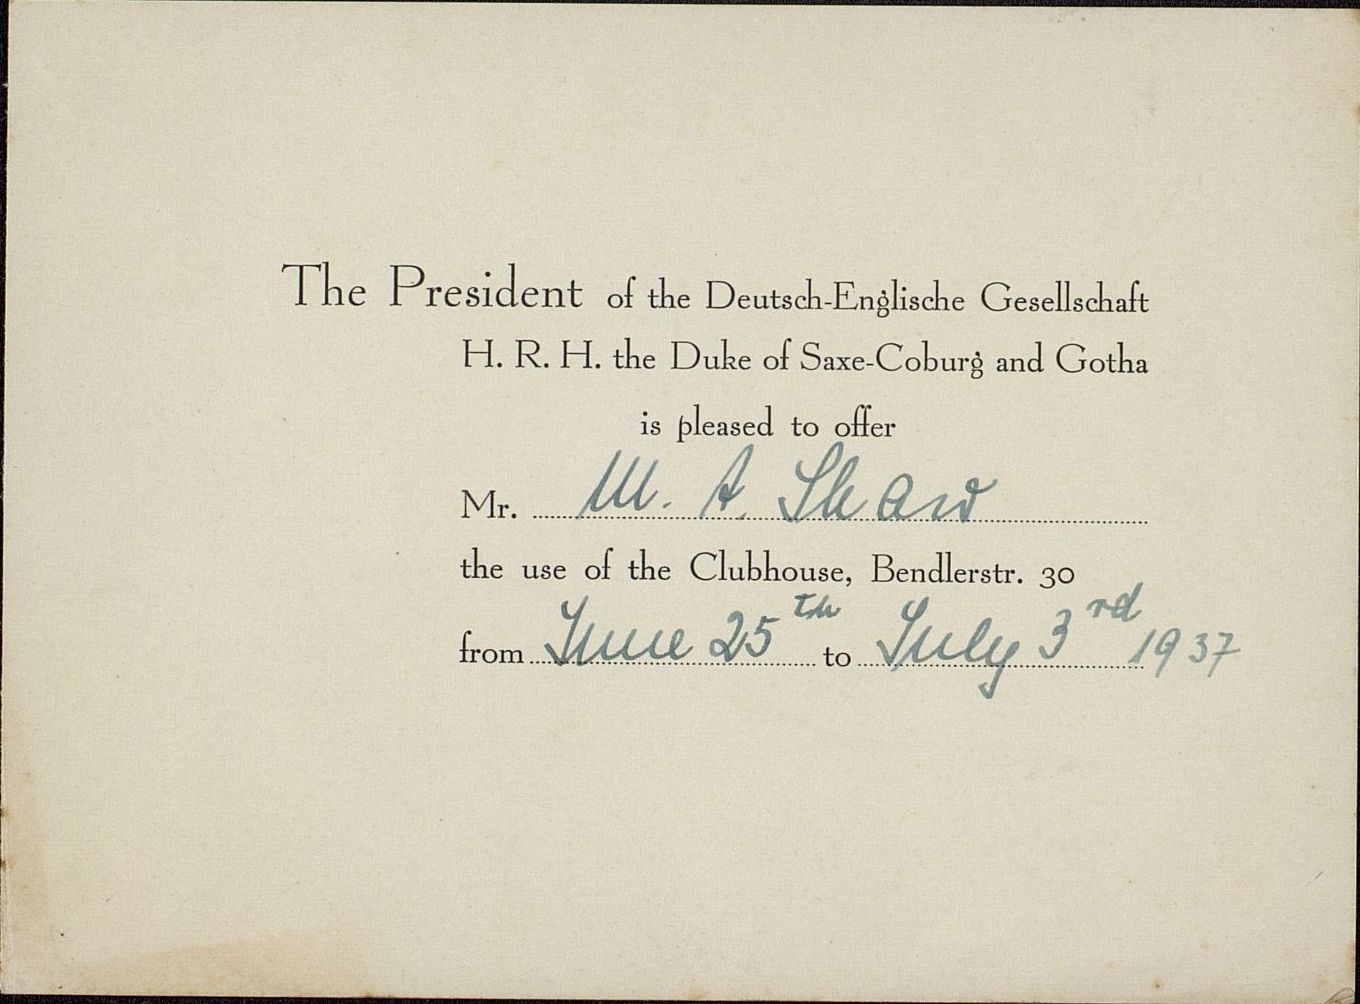 The President of the Deutsch-Englische Gesellschaft
H. R. H. the Duke of Saxe-Coburg and Gotha
is pleased to offer
Mr. M. A. Shaw
the use of the Clubhouse, Bendlerstr. 30
from June 25th to July 3rd 1937